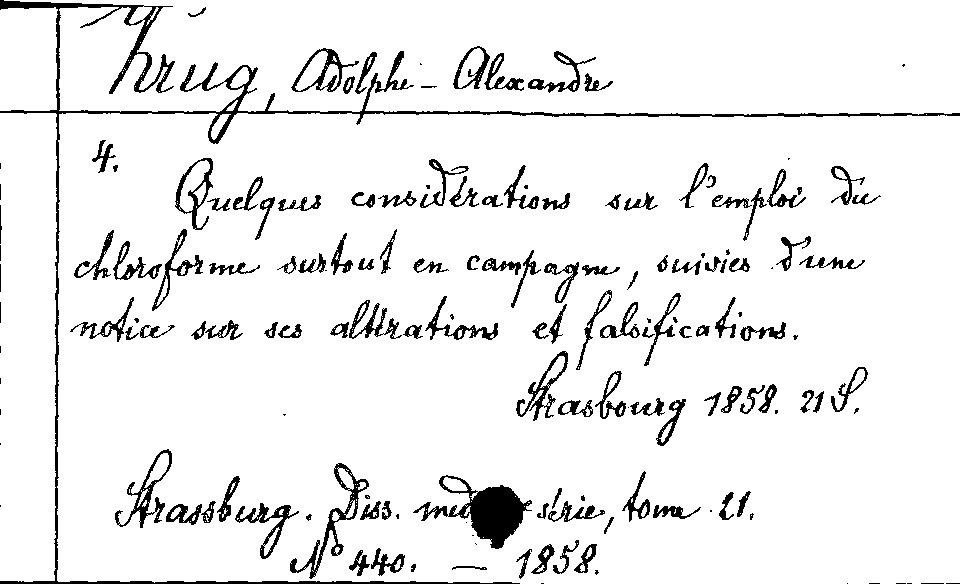 Krug, Adolphe-Alexandre
4.
Quelques considérations sur l'emploi du
chloroforme surtout en campagne, suivies d'une
notice sur ses altérations et falsifications.
Strasbourg 1858. 21 S.
Strassburg. Diss. med. série, tome 21.
No 440. — 1858.